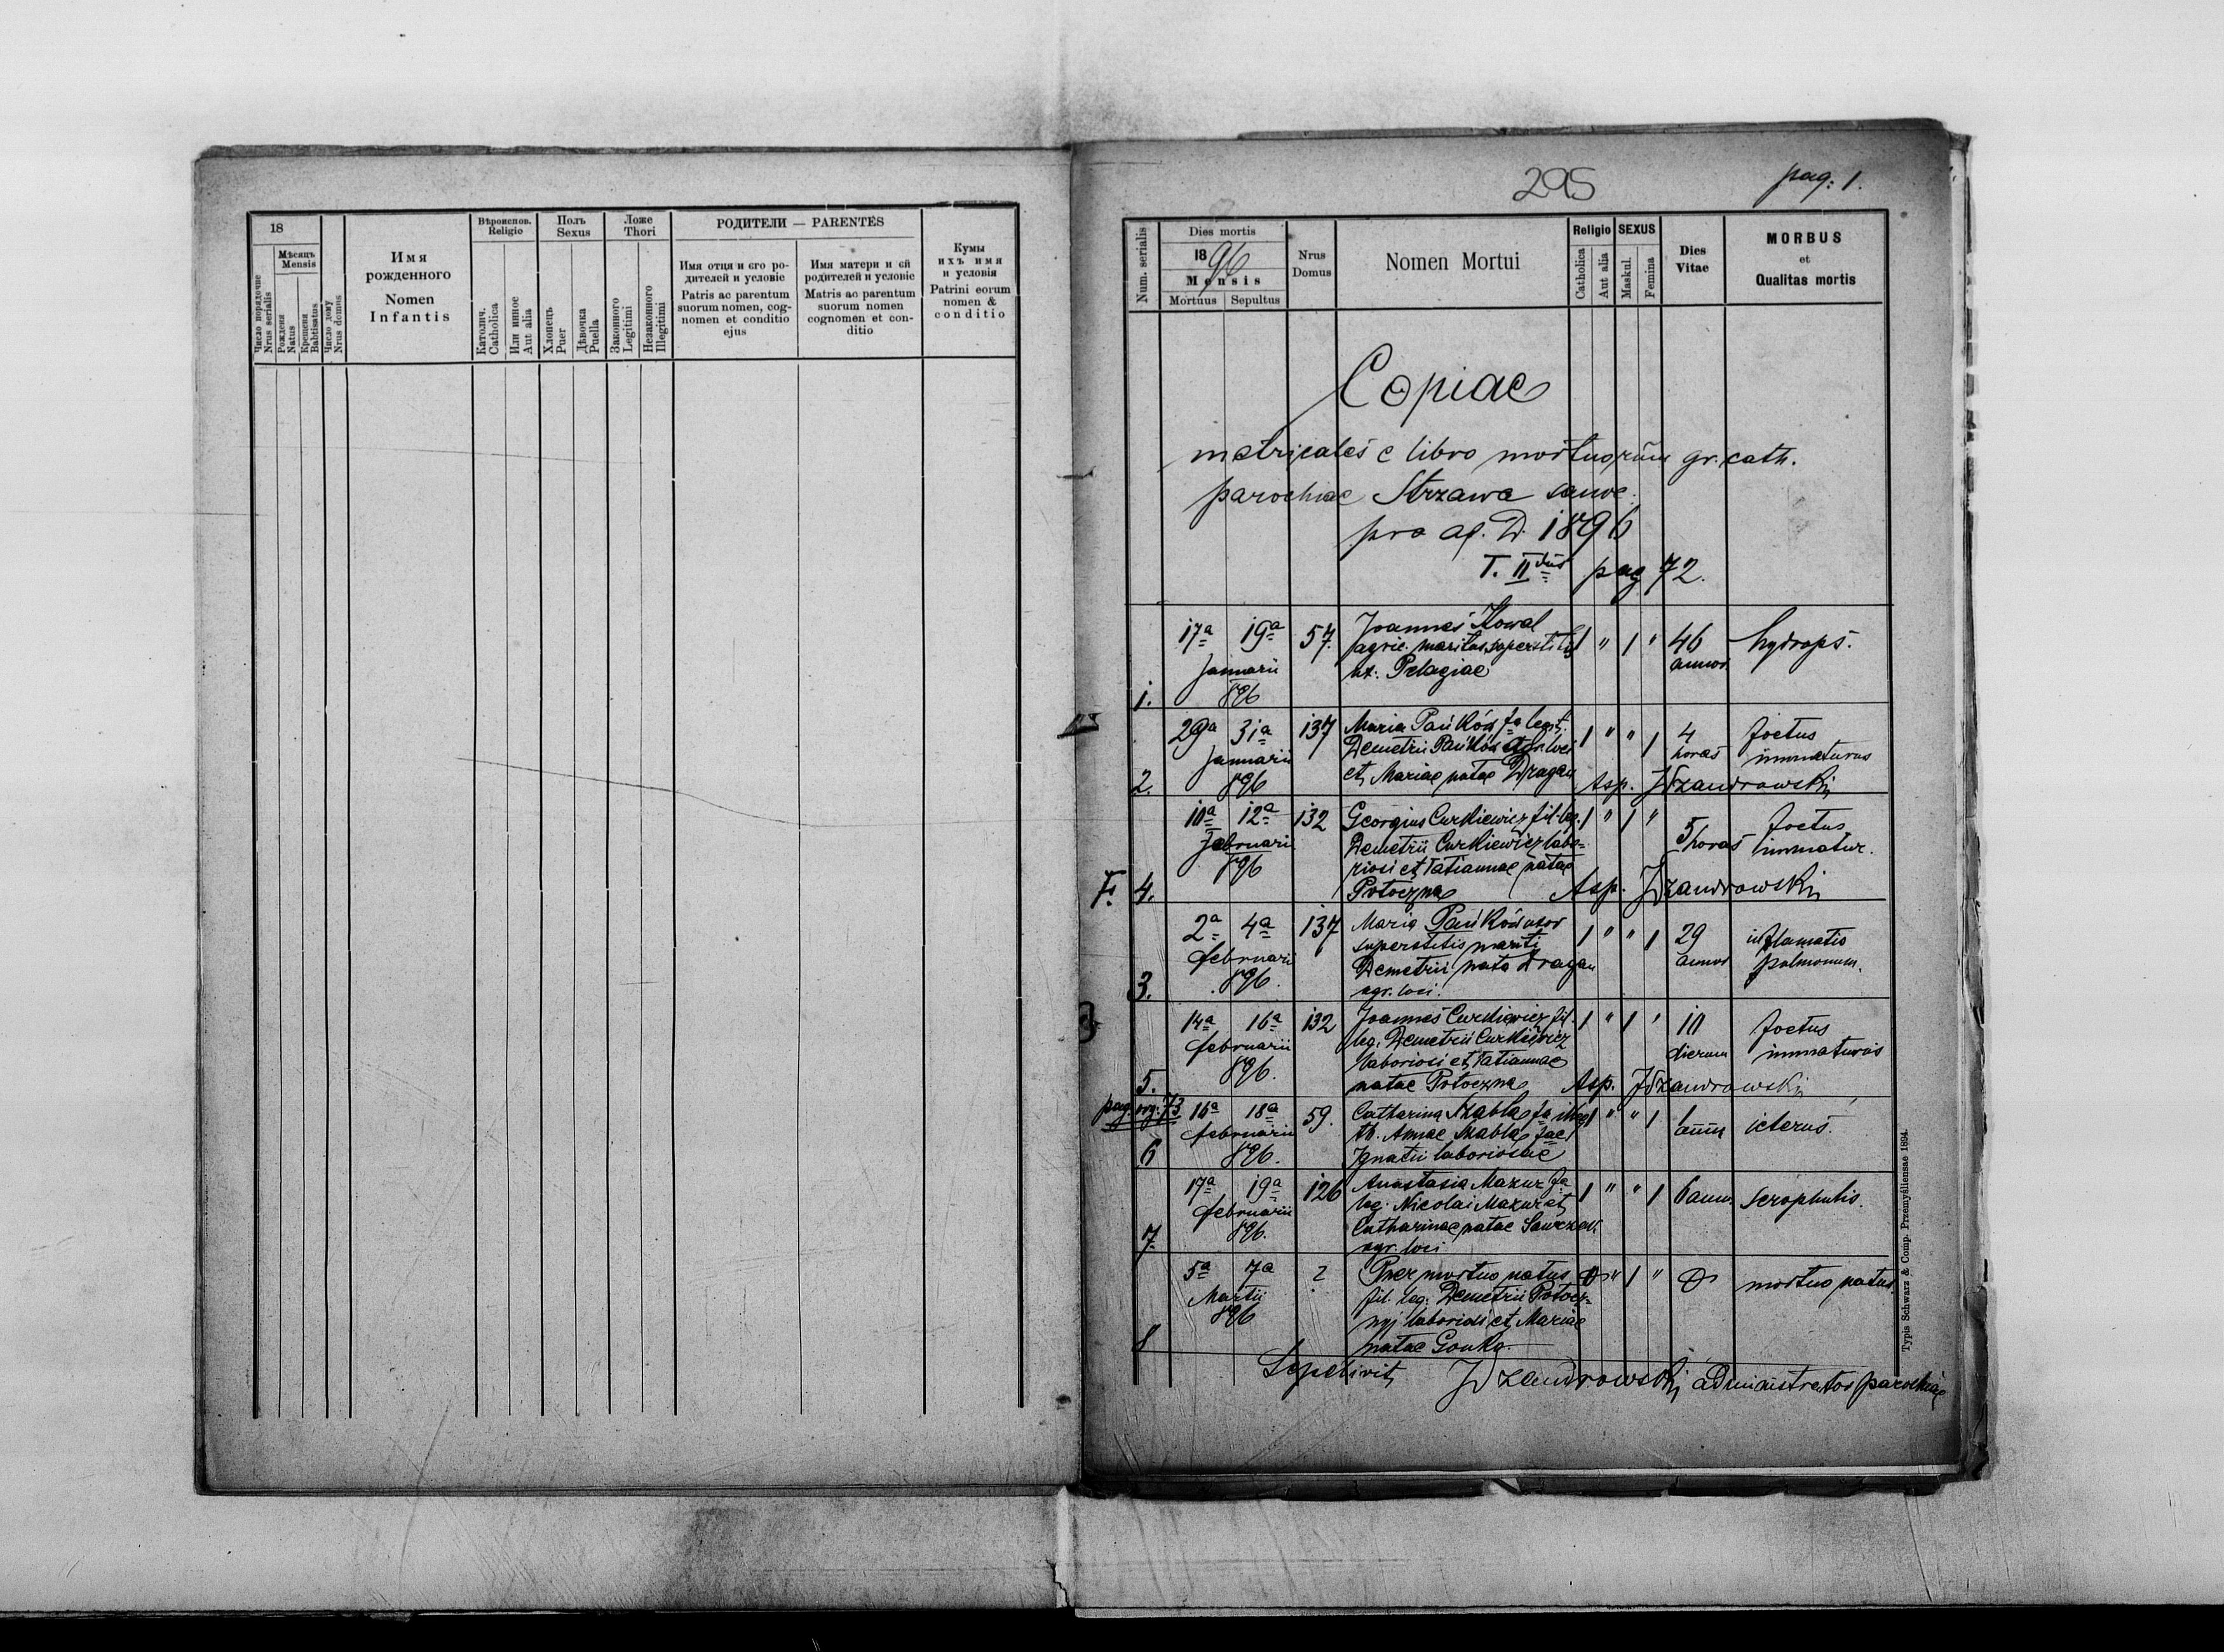 18
Мѣсяць
Mensis
Число порядочне
Nrus serialis
Рожденя
Natus
Крещеня
Babtisatus
Число дому
Nrus domus
Имя
рожденного
Nomen
Infantis
Вѣроиспов.
Religio
Католич.
Catholica
Или инное
Aut alia
Полъ
Sexus
Хлопець
Puer
Дѣвочка
Puella
Ложе
Thori
Законного
Legitimi
Незаконного
Illegitimi
РОДИТЕЛИ — PARENTES
Имя отця и єго ро-
дителей и условіє
Patris ac parentum
suorum nomen, cog-
nomen et conditio
ejus
Имя матери и єй
родителей и условіє
Matris ac parentum
suorum nomen
cognomen et con-
ditio
Кумы
ихъ имя
и условія
Patrini eorum
nomen &
conditio
295
pag: 1.
Num. serialis
Dies mortis
1896
Mensis
Mortuus Sepultus
Nrus
Domus
Nomen Mortui
Religio
Catholica
Aut alia
SEXUS
Maskul.
Femina
Dies
Vitae
MORBUS
et
Qualitas mortis
Copiae
metricales e libro mortuorum gr. cath.
parochiae
pro D. 1896
T. II pag 72.
1. 17a 19a 57. Joannes Kowal 1 " 1 " 46 hydrops.
Januarii agric. maritus superstitis annor.
896 ux. Pelagiae
2. 29a 31a 137 Maria Pańków fa legt. 1 " " 1 4 foetus
Januarii Demetrii Pańków agr. loci horas immaturus
896 et Mariae natae Dragan Asp. Dzandrowskij
F. 4. 10a 12a 132 Georgius Curkiewicz fil. leg. 1 " 1 " 5 foetus
februarii Demetrii Curkiewicz labo= horas immatur.
896 riosi et Tatiannae natae
Potoczna Asp. Dzandrowskij
3. 2a 4a 137 Maria Pańków uxor 1 " " 1 29 inflamatio
februarii superstitis mariti annor pulmonum.
896. Demetrii nata Dragan
agr. loci.
5. 14a 16a 132 Joannes Curkiewicz fil. 1 " 1 " 10 foetus
februarii leg. Demetrii Curkiewicz dierum immaturus
896. laboriosi et Tatiannae
natae Potoczna Asp. Dzandrowskij
pag. org: 73
6 16a 18a 59. Catharina Szabla fa illeg 1 " " 1 1 annu icterus.
februarii th. Annae Szabla fae
896. Ignatii laboriosae
7. 17a 19a 126 Anastasia Mazur fa 1 " " 1 6 ann. scrophulis.
februarii leg. Nicolai Mazur et
896. Catharinae natae
agr. loci
8 5a 7a ? Puer mortuo natus 0 " 1 " 0 mortuo natus.
Martii fil. leg. Demetrii Potocz=
896 nyj laboriosi et Mariae
natae Gonka.
Sepelivit Dzandrowskij administrator parochiae
Typis Schwarz & Comp. Przemyśliensae 1894.